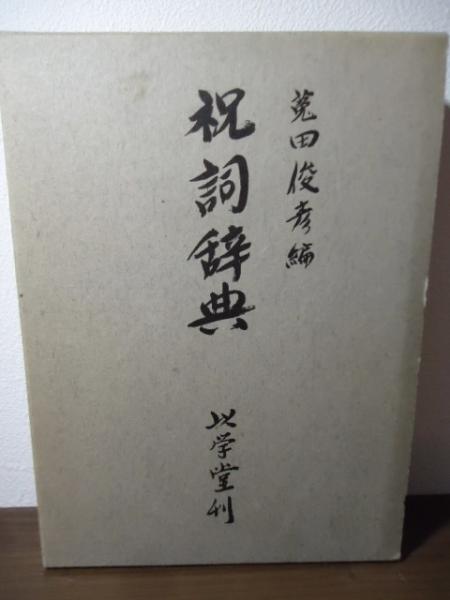 菟田俊彦編
祝詞辞典
学堂刊